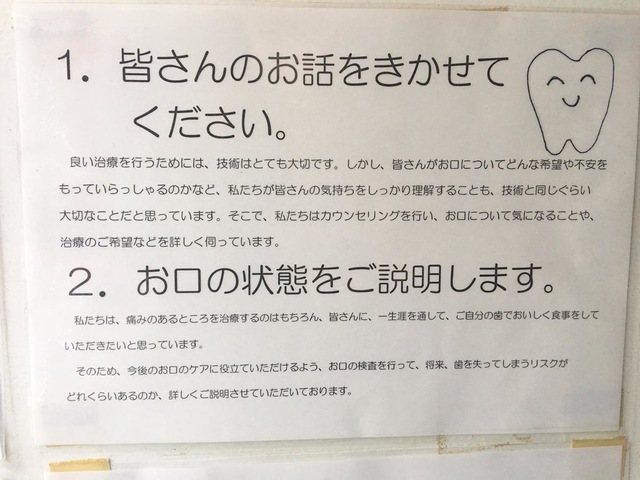 1．皆さんのお話をきかせて
ください。
良い治療を行うためには、技術はとても大切です。しかし、皆さんがお口についてどんな希望や不安を
もっていらっしゃるのかなど、私たちが皆さんの気持ちをしっかり理解することも、技術と同じぐらい
大切なことだと思っています。そこで、私たちはカウンセリングを行い、お口について気になることや、
治療のご希望などを詳しく伺っています。
2．お口の状態をご説明します。
私たちは、痛みのあるところを治療するのはもちろん、皆さんに、一生涯を通して、ご自分の歯でおいしく食事をして
いただきたいと思っています。
そのため、今後のお口のケアに役立ていただけるよう、お口の検査を行って、将来、歯を失ってしまうリスクが
どれくらいあるのか、詳しくご説明させていただいております。